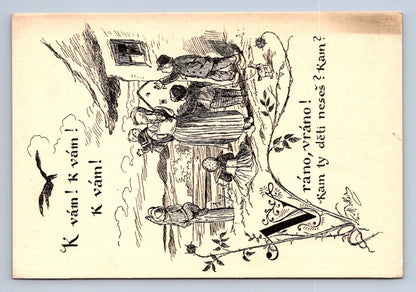 Vrano, vráno!
Kam ty děti neseš? Kam?
K vám! K vám!
K vám!